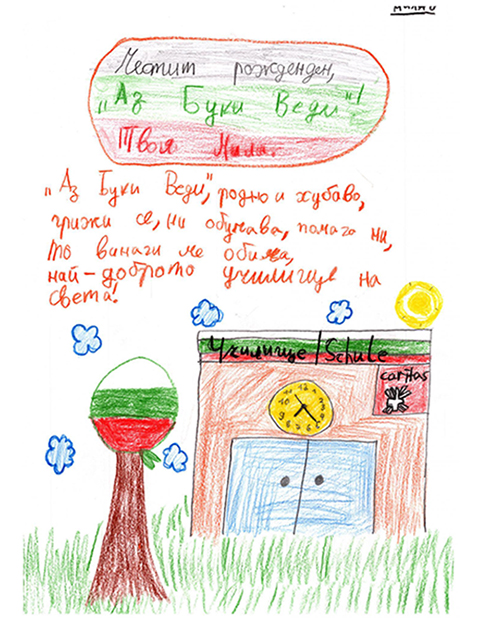 Честит рожденден,
„Аз Буки Веди“!
Твоя Мила.
„Аз Буки Веди“, родно и хубаво,
грижи се, ни обучава, помага ни,
То винаги ме обича,
най-доброто училище на
света!
Училище | Schule
caritas
12